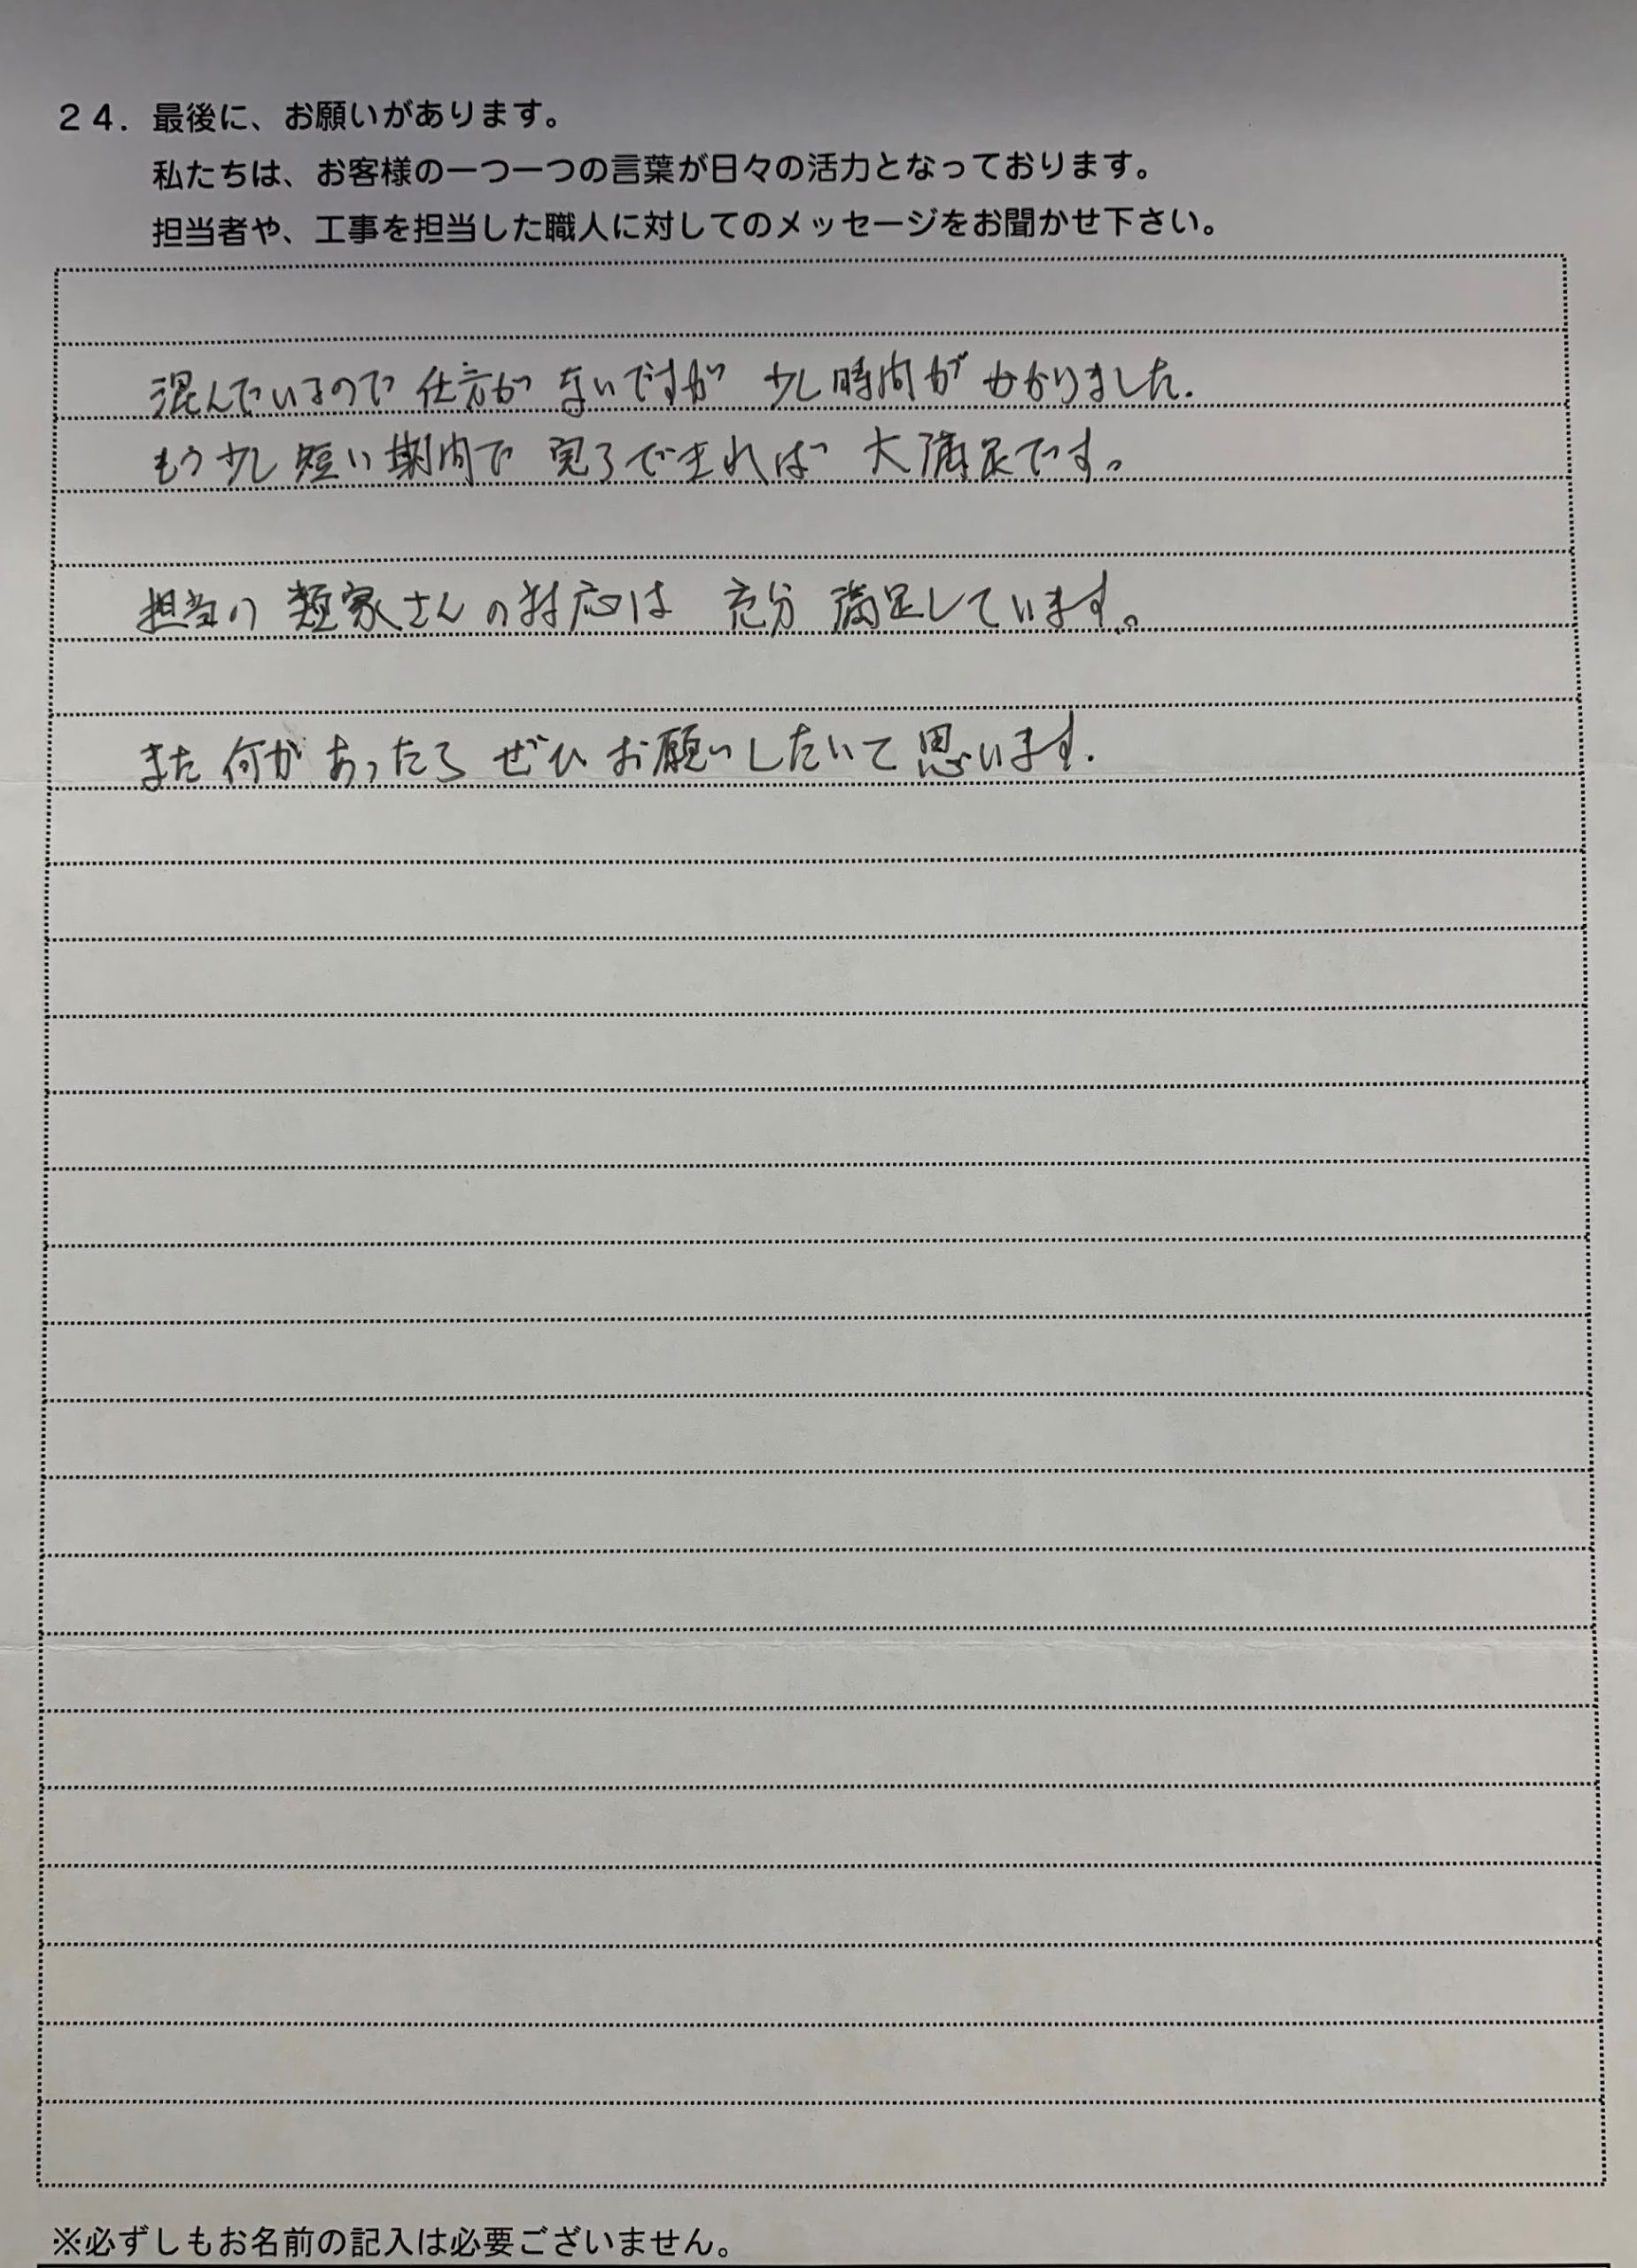 ２４．最後に、お願いがあります。
私たちは、お客様の一つ一つの言葉が日々の活力となっております。
担当者や、工事を担当した職人に対してのメッセージをお聞かせ下さい。
混んでいるので仕方がないですが 少し時間がかかりました.
もう少し短い期間で 完了できれば 大満足です。
担当の 類家さんの対応は 充分 満足しています。
また何かあったら ぜひ お願いしたいて 思います.
※必ずしもお名前の記入は必要ございません。